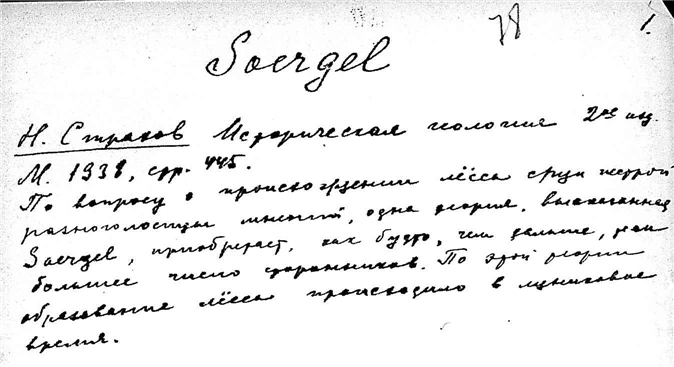 78 1.
Soergel
Н. Страхов Историческая геология 2ое изд.
М. 1938, стр. 445.
По вопросу о происхождении лёсса среди пестрой
разноголосицы мнений, одна теория, высказанная
Soergel, приобретает, как будто, чем дальше, тем
большее число сторонников. По этой теории
образование лёсса происходило в ледниковое
время.